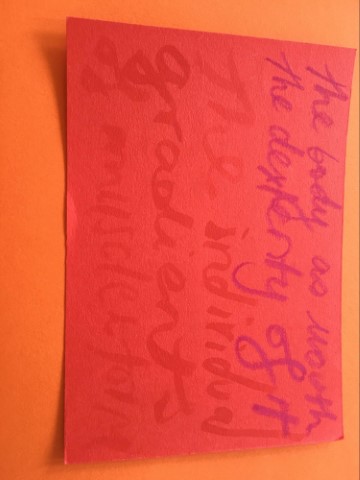 The body as mouth
The dexterity of it
The individual
gradients
of muscle